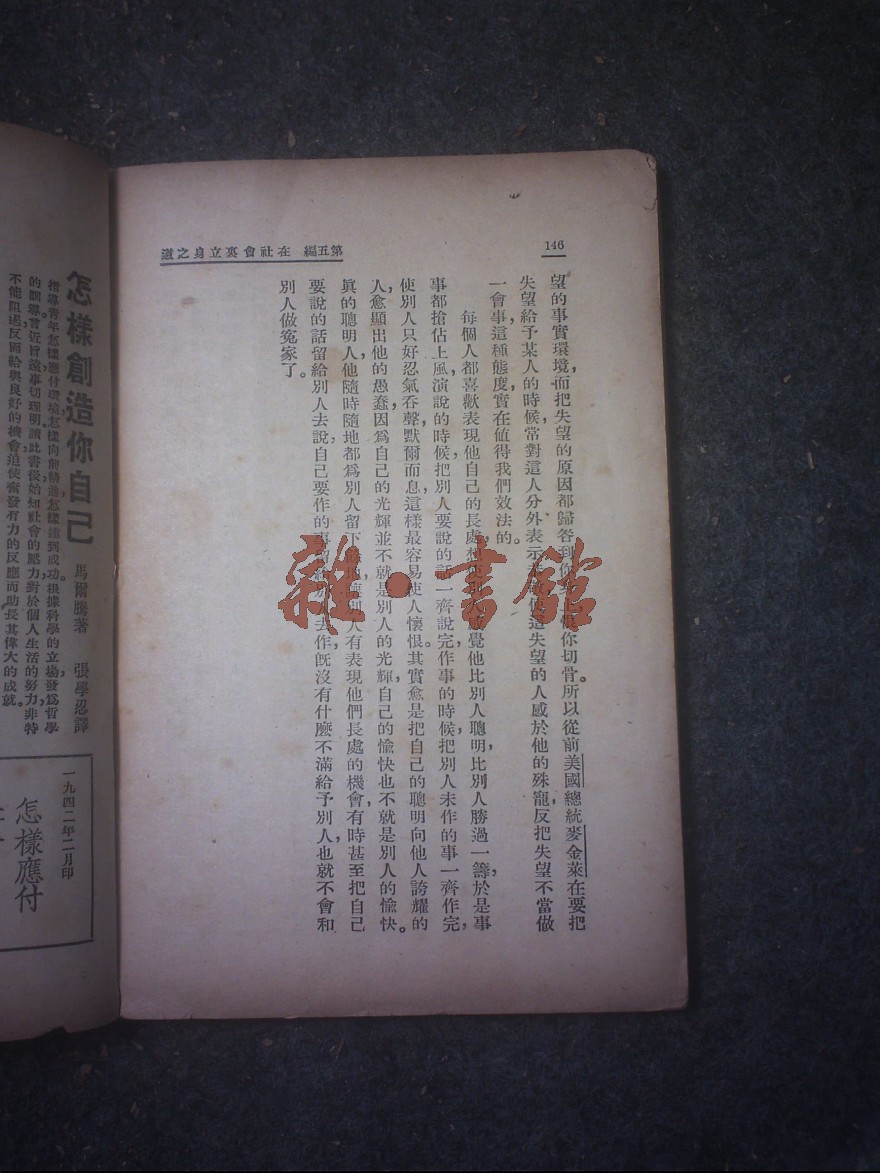 146
第五編　在社會裏立身之道
望的事實環境，而把失望的原因都歸咎到你身上，恨你切骨。所以從前美國總統麥金萊在要把
失望給予某人的時候，常對這人分外表示恭敬，使這失望的人感於他的殊寵，反把失望不當做
一會事，這種態度，實在値得我們效法的。
每個人都喜歡表現他自己的長處，想使別人感覺他比別人聰明，比別人勝過一籌，於是事
事都搶佔上風，演說的時候，把別人要說的話一齊說完，作事的時候，把別人未作的事一齊作完，
使別人只好忍氣吞聲，默爾而息，這樣最容易使人懷恨。其實愈是把自己的聰明向他人誇耀的
人，愈顯出他的愚蠢，因爲自己的光輝並不就是別人的光輝，自己的愉快也不就是別人的愉快。
眞的聰明人，他隨時隨地都爲別人留下，別人有表現他們長處的機會，有時甚至把自己
要說的話留給別人去說，自己要作的事留給別人去作，旣沒有什麼不滿給予別人，也就不會和
別人做冤家了。
怎樣創造你自己
馬爾騰著　張學忍譯
指導靑年怎樣應付環境，怎樣向前精進，怎樣達到成功，根據科學的立場，發爲哲學
的訓導，言近旨遠，事切理明，讀此書後，始知社會的壓力，對於個人生活的努力，非特
不能阻遏，反而給與良好的機會，迫使奮發有力的反應，而助長其偉大的成就。
一九四二年二月印
怎樣應付
雜·書館